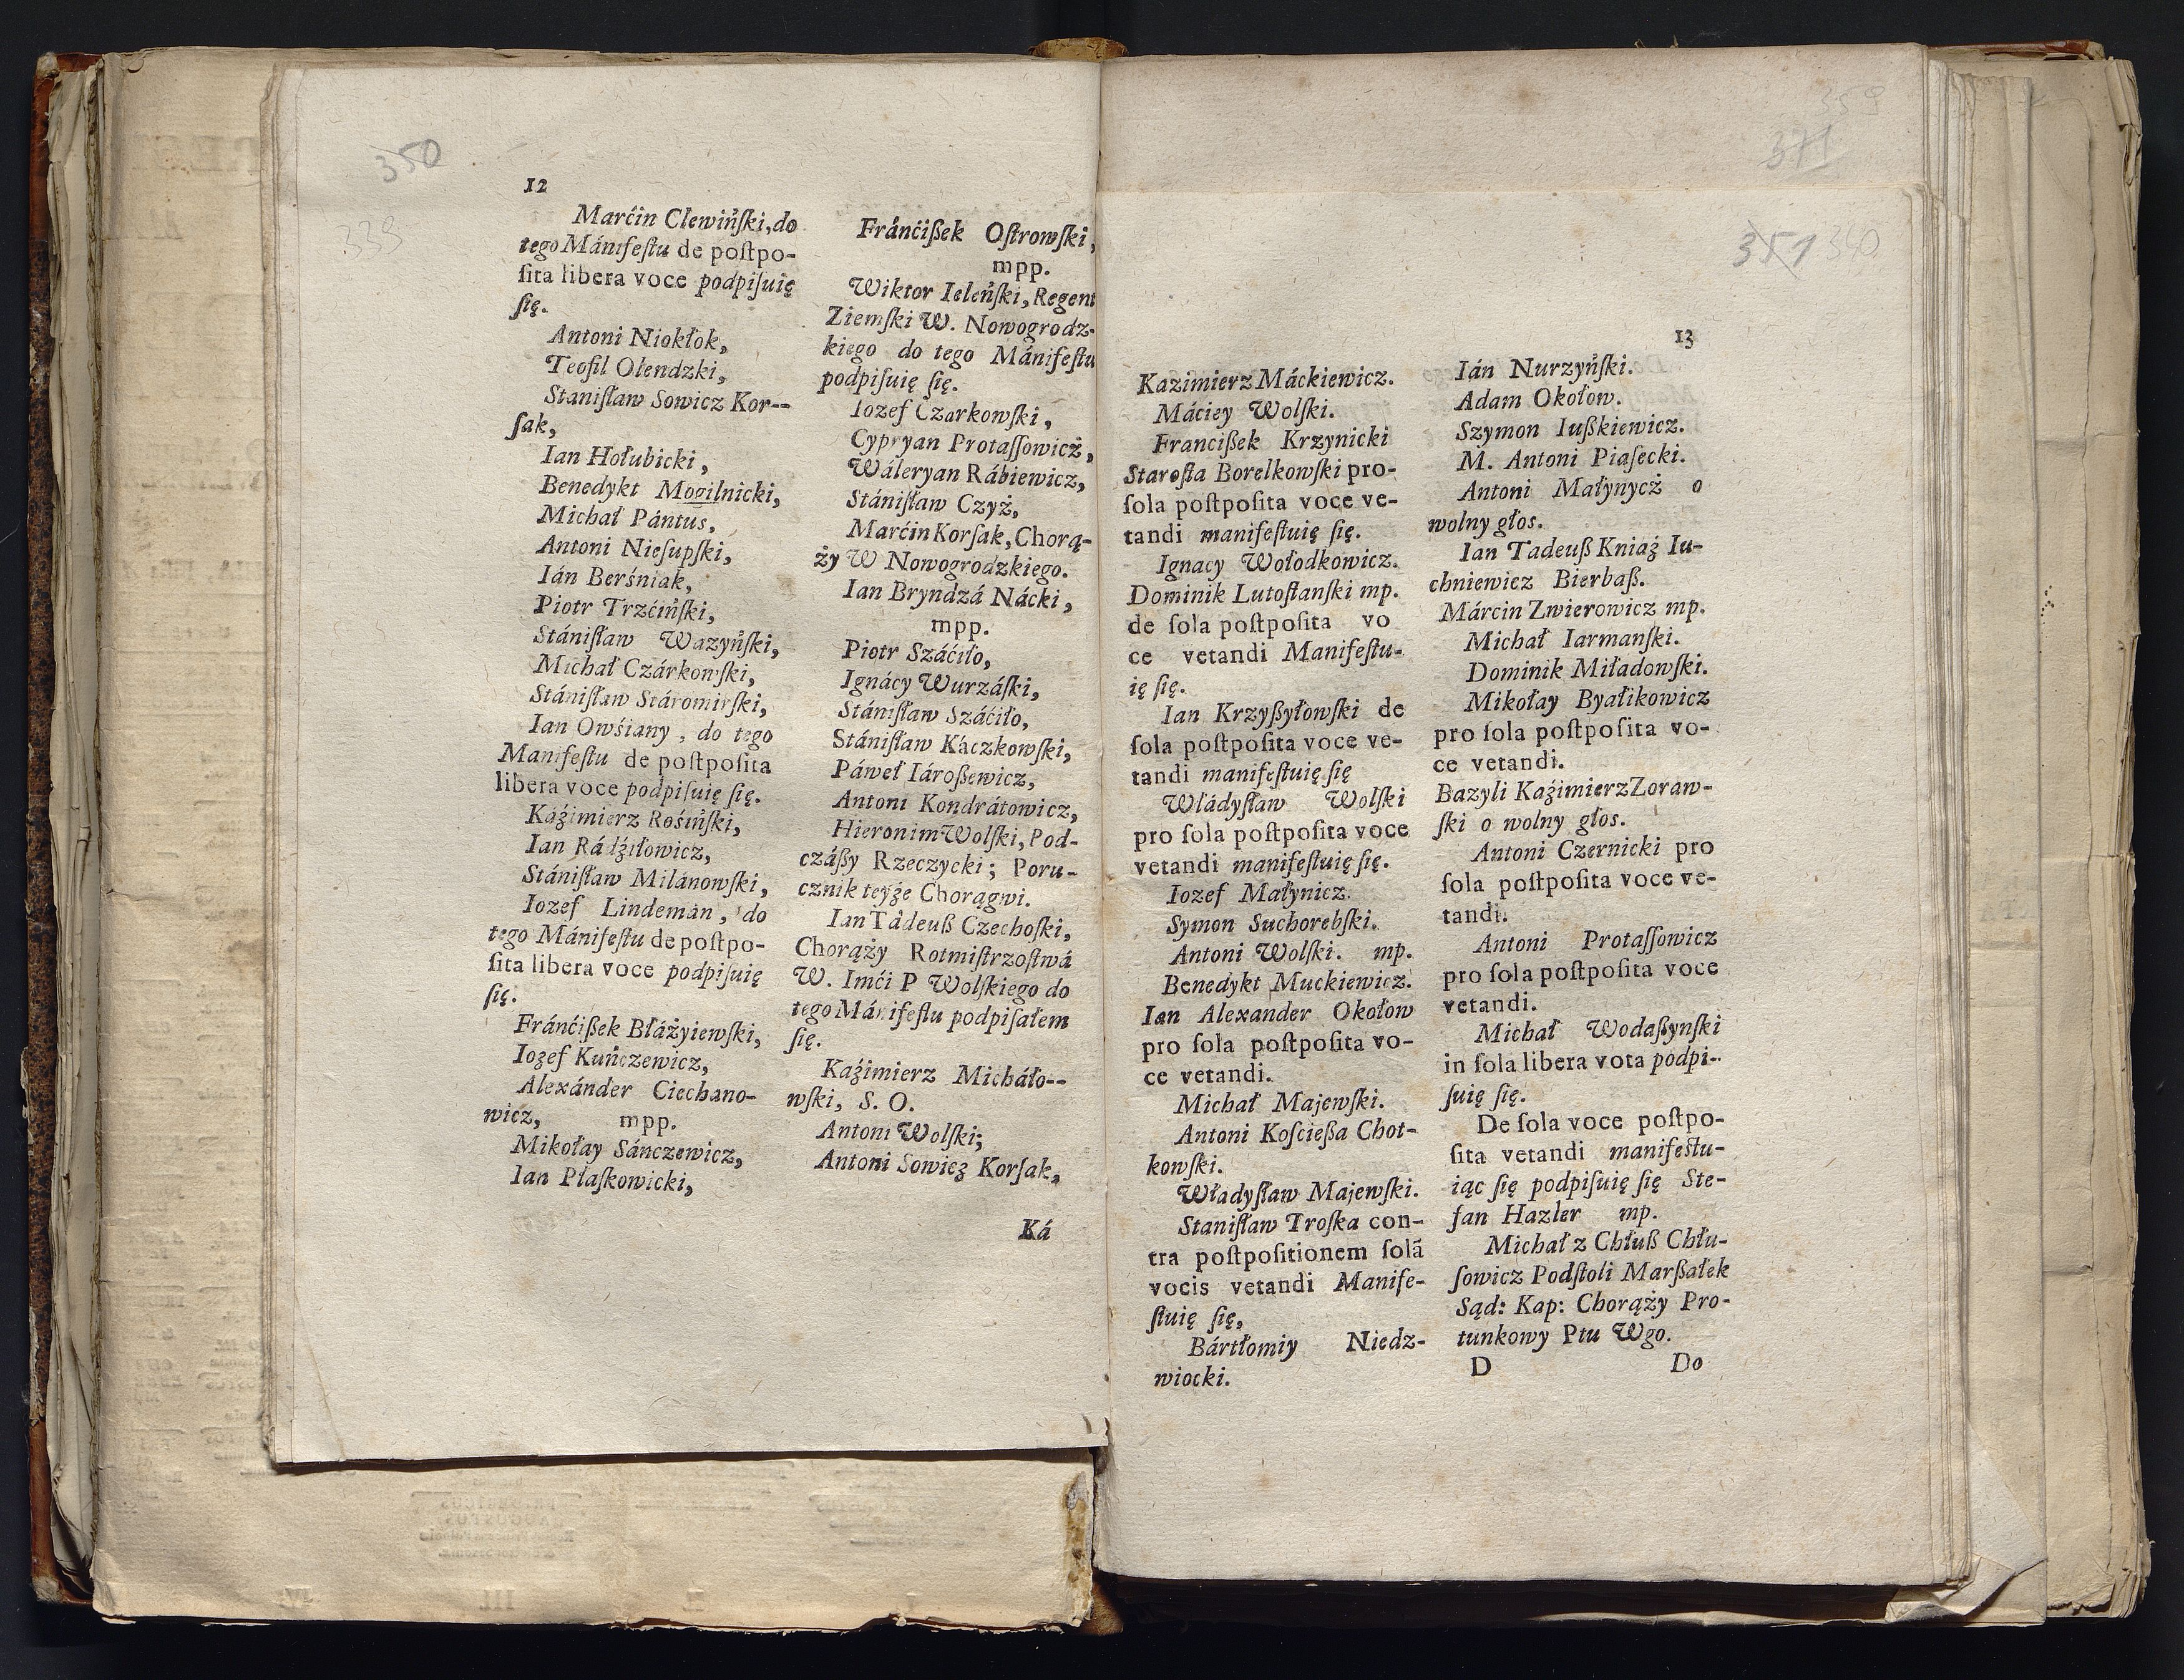 350
329
12
Marćin Clewińſki, do
tego Mánifeſtu de poſtpo-
ſita libera voce podpiſuię
ſię.
Antoni Niokłok,
Teofil Olendzki,
Staniſław Sowicz Kor--
ſak,
Ian Hołubicki,
Benedykt Mogilnicki,
Michał Pántus,
Antoni Nieſupſki,
Ián Berśniak,
Piotr Trzćińſki,
Stániſław Wazyńſki,
Michał Czárkowſki,
Stániſław Stáromirſki,
Ian Owśiany, do tego
Manifeſtu de poſtpoſita
libera voce podpiſuię ſię.
Káźimierz Rośińſki,
Ian Rádźiłowicz,
Stániſław Milánowſki,
Iozef Lindemán, do
tego Mánifeſtu de poſtpo-
ſita libera voce podpiſuię
ſię.
Fránćißek Błáżyiewſki,
Iozef Kuńczewicz,
Alexánder Ciechano-
wicz, mpp.
Mikołay Sánczewicz,
Ian Płaſkowicki,
Fránćißek Oſtrowſki,
mpp.
Wiktor Ieleńſki, Regent
Ziemſki W. Nowogrodz-
kiego do tego Mánifeſtu
podpiſuię ſię.
Iozef Czarkowſki,
Cypryan Protaſſowicż,
Wáleryan Rábiewicz,
Stániſław Czyż,
Marćin Korſak, Chorą-
ży W Nowogrodzkiego.
Ian Bryndzá Nácki,
mpp.
Piotr Száćiło,
Ignácy Wurzáſki,
Stániſław Száćiło,
Stániſław Káczkowſki,
Páweł Iároßewicz,
Antoni Kondrátowicz,
Hieronim Wolſki, Pod-
czáßy Rzeczycki; Poru-
cznik teyże Chorągwi.
Ian Tádeuß Czechoſki,
Chorąży Rotmiſtrzoſtwá
W. Imći P Wolſkiego do
tego Mánifeſtu podpiſałem
ſię.
Kaźimierz Micháło--
wſki, S. O.
Antoni Wolſki;
Antoni Sowicz Korſak,
Ká
359
371
351 340
13
Kazimierz Máckiewicz.
Máciey Wolſki.
Francißek Krzynicki
Staroſta Borelkowſki pro-
ſola poſtpoſita voce ve-
tandi manifeſtuię ſię.
Ignacy Wołodkowicz.
Dominik Lutoſtanſki mp.
de ſola poſtpoſita vo
ce vetandi Manifeſtu-
ię ſię.
Ian Krzyßyłowſki de
ſola poſtpoſita voce ve-
tandi manifeſtuię ſię
Władyſław Wolſki
pro ſola poſtpoſita voce
vetandi manifeſtuię ſię.
Iozef Małynicz.
Symon Suchorebſki.
Antoni Wolſki. mp.
Benedykt Muckiewicz.
Ian Alexander Okołow
pro ſola poſtpoſita vo-
ce vetandi.
Michał Majewſki.
Antoni Koſcießa Chot-
kowſki.
Władyſław Majewſki.
Staniſław Troſka con-
tra poſtpoſitionem ſolã
vocis vetandi Manife-
ſtuię ſię,
Bártłomiy Niedz-
wiocki.
Ián Nurzyńſki.
Adam Okołow.
Szymon Iußkiewicz.
M. Antoni Piaſecki.
Antoni Małynycż o
wolny głos.
Ian Tadeuß Kniaź Iu-
chniewicz Bierbaß.
Márcin Zwierowicz mp.
Michał Iarmanſki.
Dominik Miładowſki.
Mikołay Byałikowicz
pro ſola poſtpoſita vo-
ce vetandi.
Bazyli Kaźimierz Zoraw-
ſki o wolny głos.
Antoni Czernicki pro
ſola poſtpoſita voce ve-
tandi.
Antoni Protaſſowicz
pro ſola poſtpoſita voce
vetandi.
Michał Wodaßynſki
in ſola libera vota podpi-
ſuię ſię.
De ſola voce poſtpo-
ſita vetandi manifeſtu-
iąc ſię podpiſuię ſię Ste-
fan Hazler mp.
Michał z Chłuß Chłu-
ſowicz Podſtoli Marßałek
Sąd: Kap: Chorąży Pro-
tunkowy Ptu Wgo.
D Do